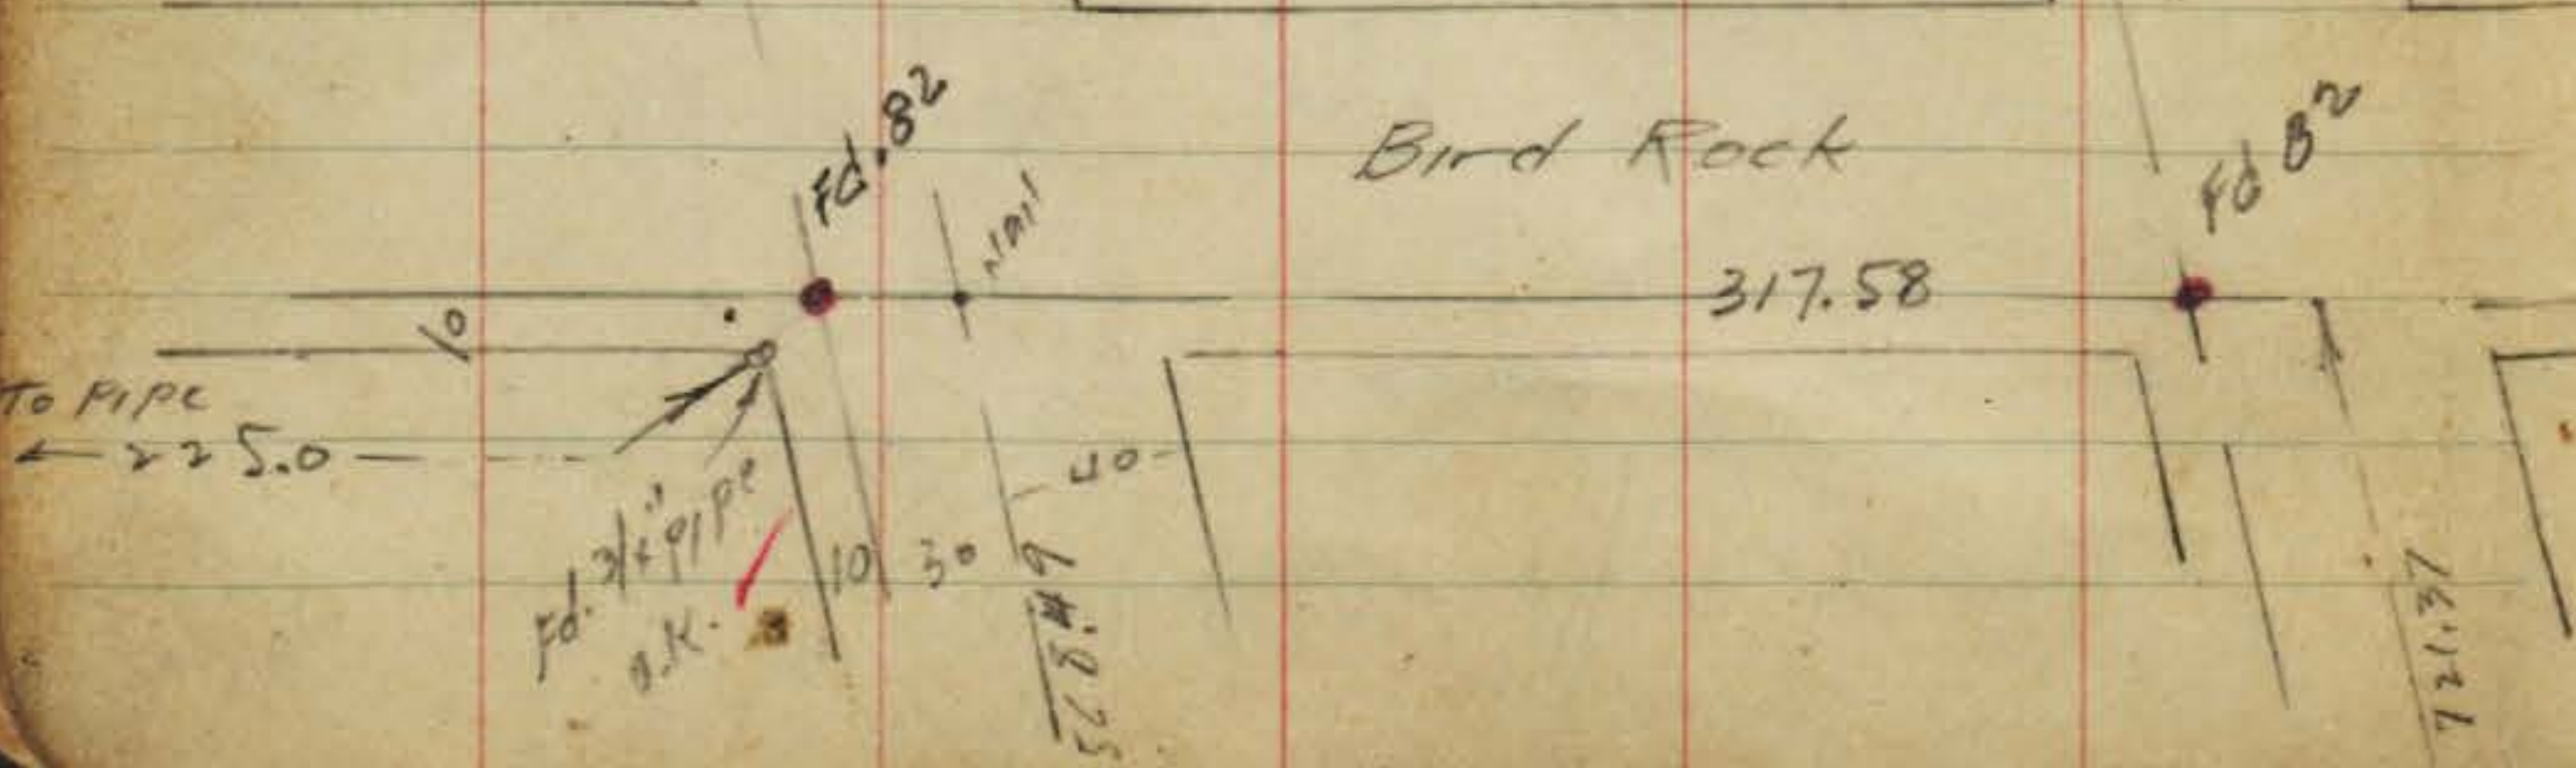 Fd. 82
Nail
Bird Rock
Fd 82
317.58
10
To Pipe
225.0
40
Fd. 3/4" pipe
O.K.
10
30
721.37